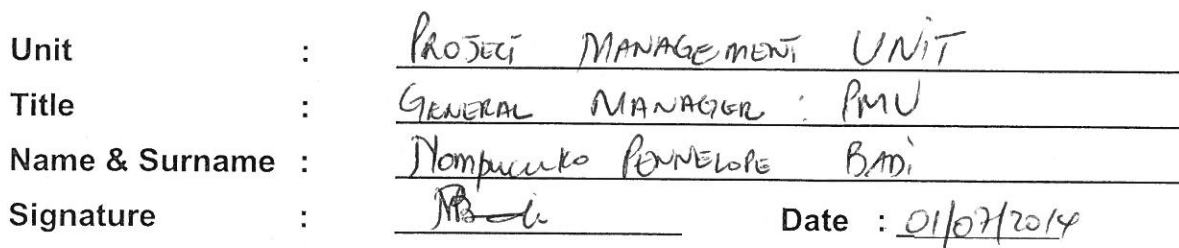 Unit : PROJECT MANAGEMENT UNIT
Title : GENERAL MANAGER : PMU
Name & Surname : PENNELOPE BADI
Signature : Date : 01/07/2014